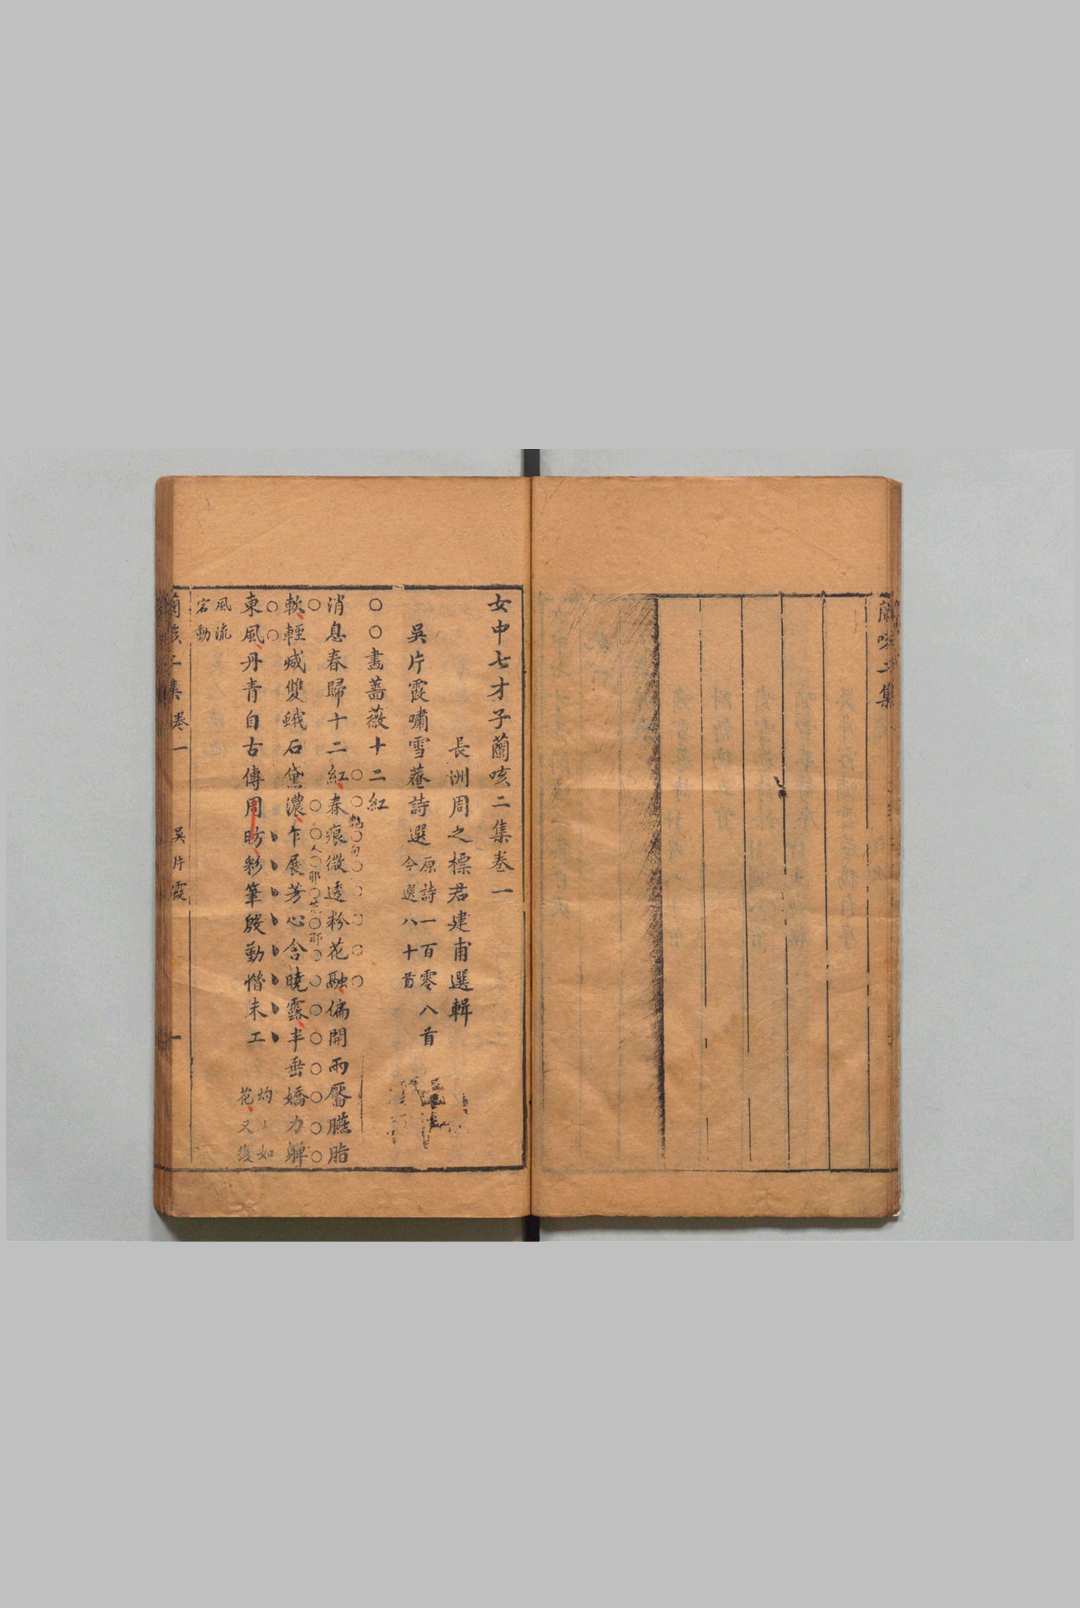 二集
女中七才子蘭咳二集卷一
長洲周之標君建甫選輯
吳片霞嘯雪菴詩選 原詩一百零八首
今選八十首
畫薔薇十二紅
消息春歸十二紅春痕微透粉花融偏開兩靨臙脂
軟輕緘雙蛾石黛濃乍展芳心含曉露半垂嬌力
東風丹青自古傳周昉彩筆慇勤惜未工
如
花又復
風流
宕動
二集卷一
吳片霞
一